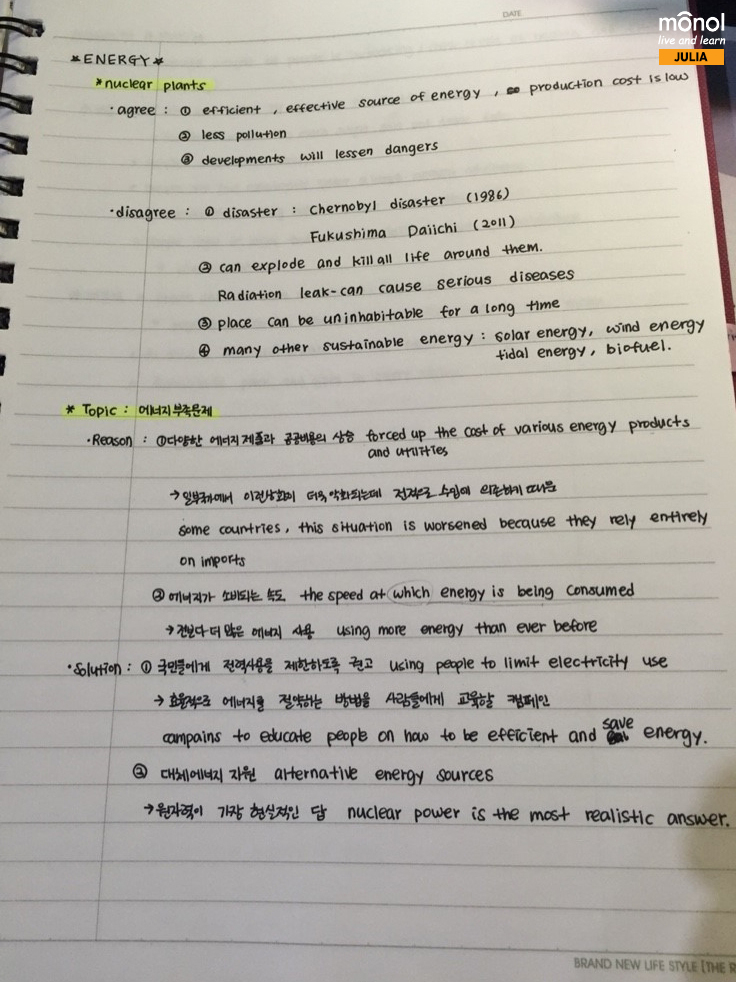 DATE
monol
live and learn
JULIA
*ENERGY*
*nuclear plants
·agree : ① efficient , effective source of energy , production cost is low
② less pollution
③ developments will lessen dangers
·disagree : ① disaster : Chernobyl disaster (1986)
Fukushima Daiichi (2011)
② can explode and kill all life around them.
Radiation leak-can cause serious diseases
③ place can be uninhabitable for a long time
④ many other sustainable energy : solar energy, wind energy
tidal energy, biofuel.
* Topic : 에너지부족문제
·Reason : ①다양한 에너지제품과 공공비용의 상승 forced up the cost of various energy products
and utilities
→ 일부국가에서 이런상황이 더욱 악화되는데 전적으로 수입에 의존하기 때문
some countries, this situation is worsened because they rely entirely
on imports
② 에너지가 소비되는 속도 the speed at which energy is being consumed
→ 전보다 더 많은 에너지 사용 using more energy than ever before
·Solution : ① 국민들에게 전력사용을 제한하도록 권고 using people to limit electricity use
→ 효율적으로 에너지를 절약하는 방법을 사람들에게 교육할 캠페인
campains to educate people on how to be efficient and save energy.
② 대체에너지 자원 alternative energy sources
→원자력이 가장 현실적인 답 nuclear power is the most realistic answer.
BRAND NEW LIFE STYLE [THE R